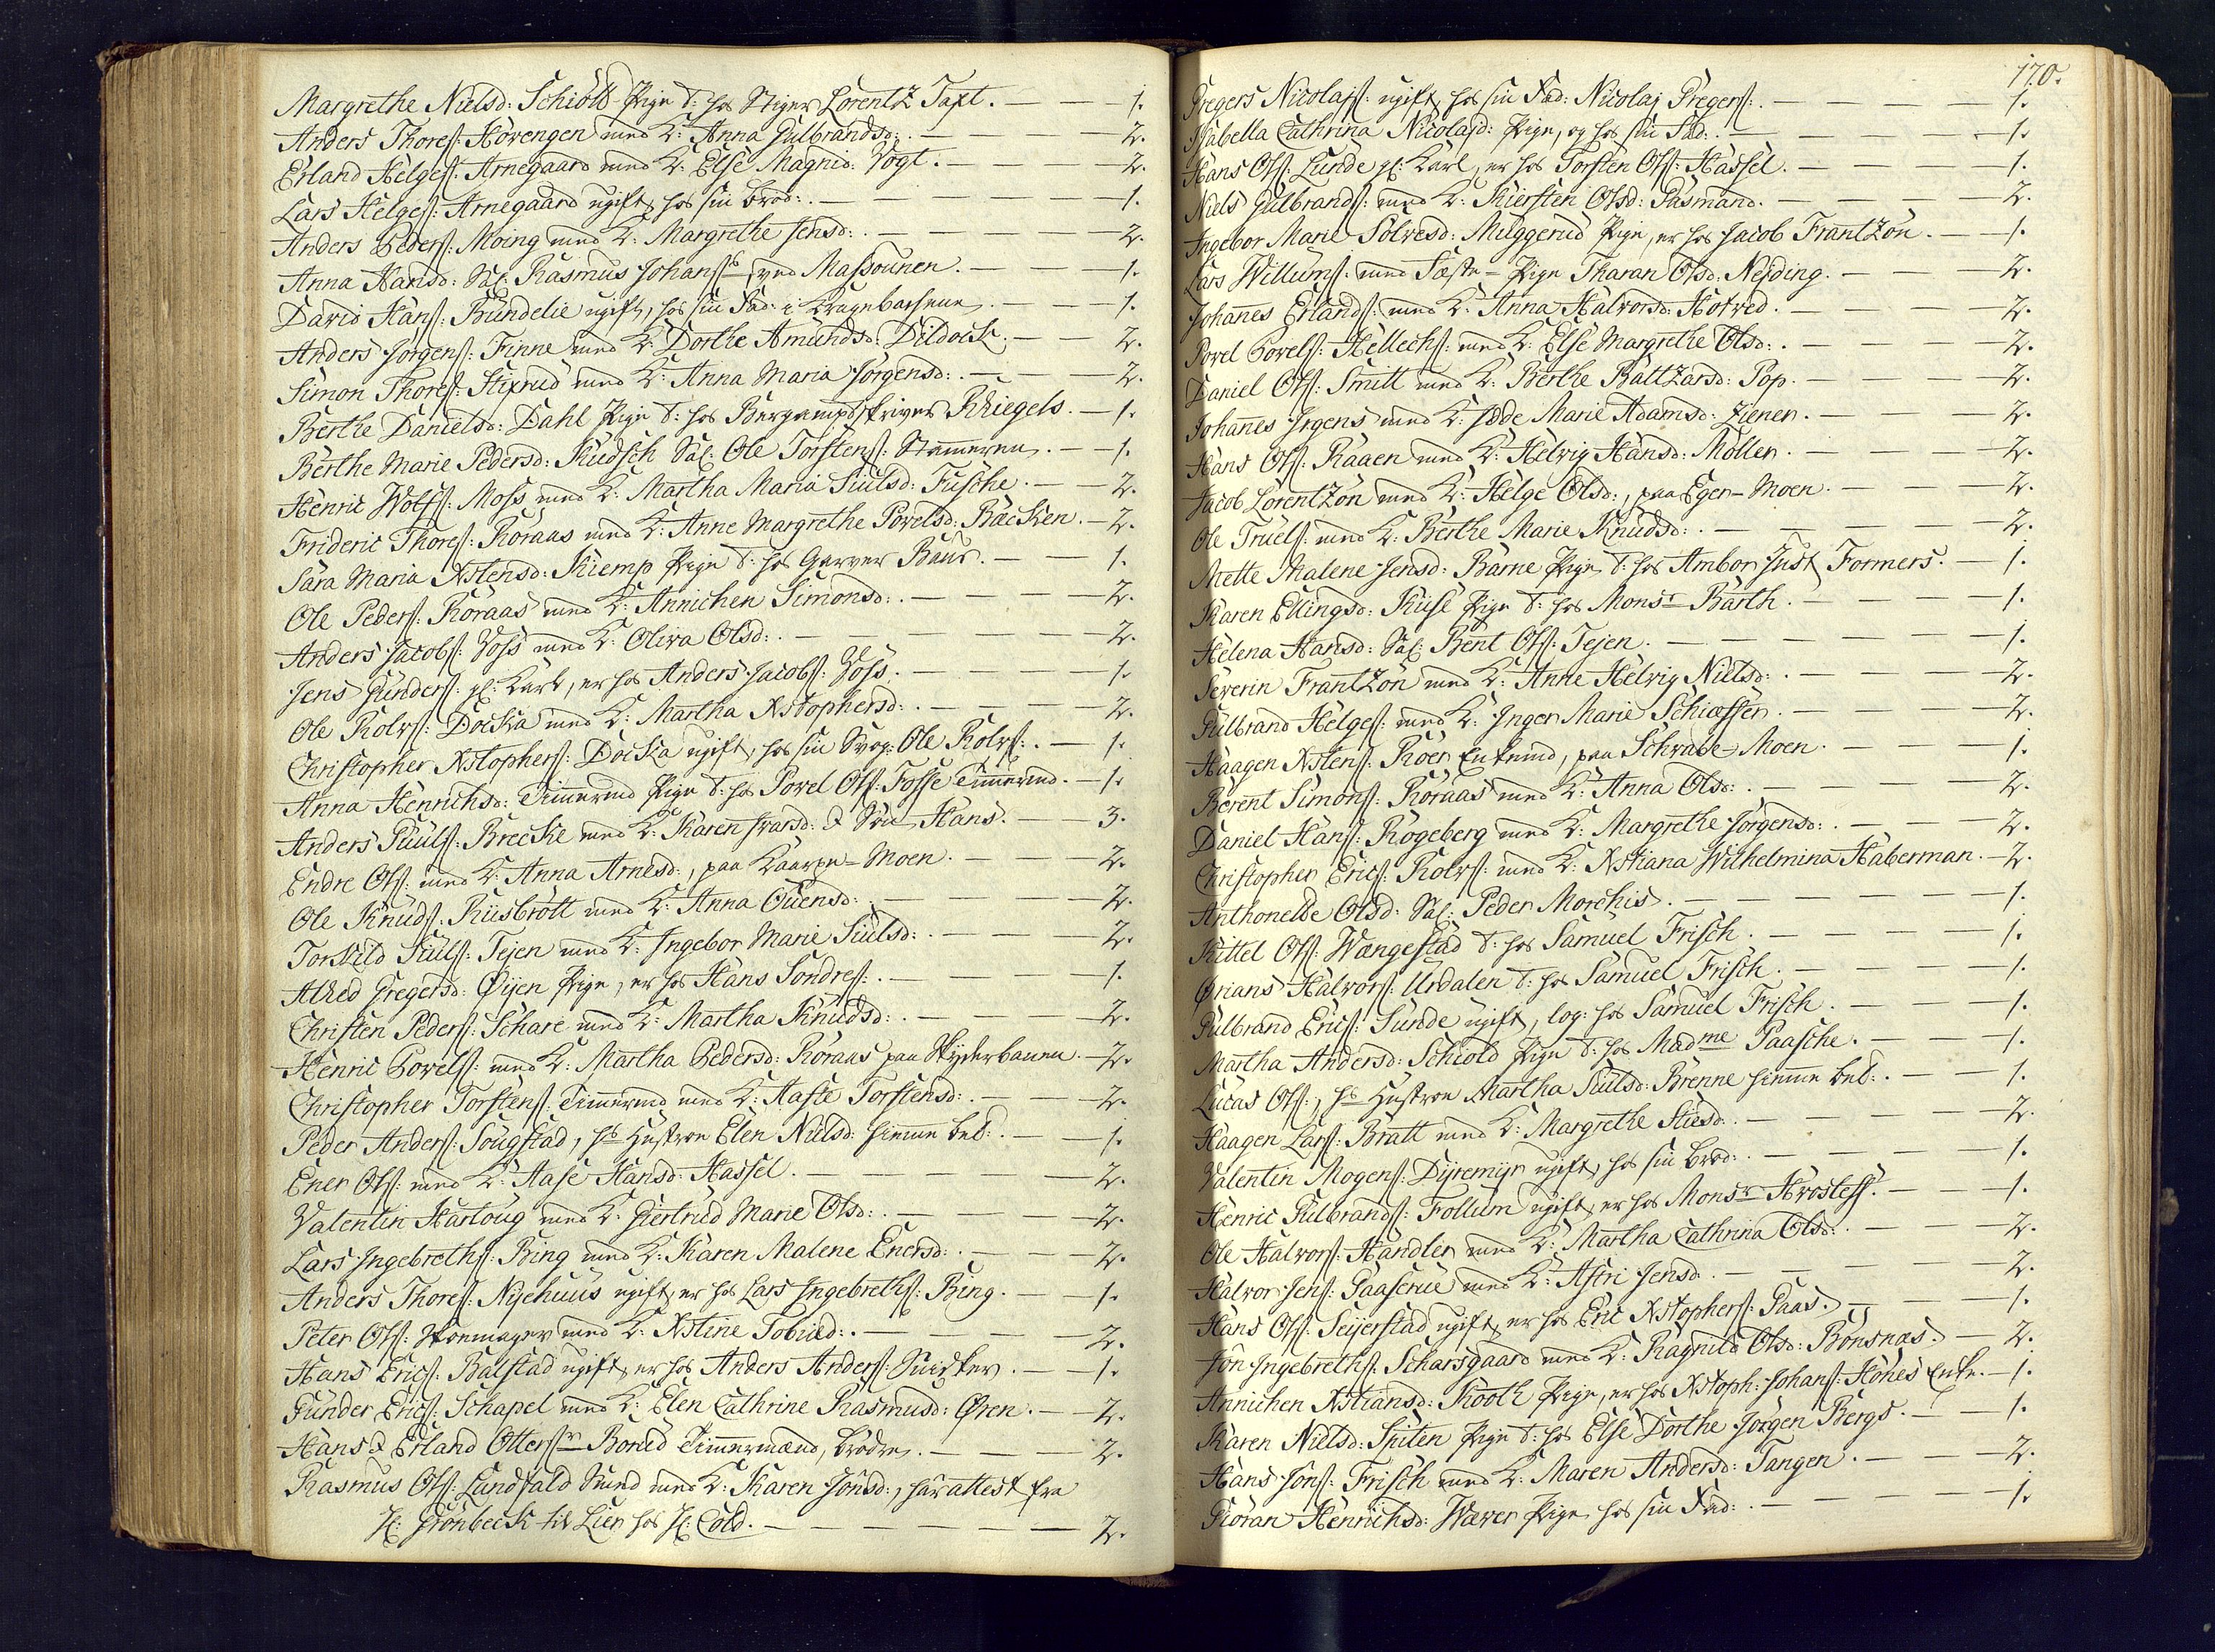 Margrethe Nielsd: Schiött Pige T: hos Stiger Lorentz Taxt. — — 1.
Anders Thoreſs: Hövengen med K: Anna Gulbrandsd: — — 2.
Erland Helgeſs: Arnegaard med K: Else Magnid: Vogt. — — 2.
Lars Helgeſs: Arnegaard ugift, hos sin Brod: — — 1.
Anders Pederſs: Moing med K: Margrethe Jensd: — — 2.
Anna Hansd: Sal: Rasmus Johanſses ved Massovnen. — — 1.
David Hanſs: Bundelie ugift, hos sin Fad: i — — 1.
Anders Jörgenſs: Finne med K: Dorthe Amundsd: Dildock. — — 2.
Simon Thoreſs: Stixrud med K: Anna Maria Jörgensd: — — 2.
Berthe Danielsd: Dahl Pige T: hos Bergampdskriver Kriegels. — 1.
Berthe Marie Pedersd: Kudsch Sal: Ole Torstenſs: — 1.
Henric Wolfſs: Moss med K: Martha Maria Siulsd: Fusche. — — 2.
Frideric Thoreſs: Röraas med K: Anne Margrethe Povelsd: Bæcken. — 2.
Sara Maria Xstensd: Kiemp Pige T: hos Garver Baur. — — 1.
Ole Pederſs: Röraas med K: Annichen Simonsd: — — 2.
Anders Jacobſs: Voss med K: Oliva Olsd: — — 2.
Jens Gunderſs: gl: Karl, er hos Anders Jacobſs: Voss. — — 1.
Ole Rolvſs: Docka med K: Martha Xstophersd: — — 2.
Christopher Xstopherſs: Docka ugift, hos sin Svog: Ole Rolvſs: — 1.
Anna Henrichsd: Timermd Pige T: hos Povel Olſs: Fosse Timermd. — 1.
Anders Juulſs: Brecke med K: Karen Ivarsd: & Sön Hans. — — 3.
Endre Olſs: med K: Anna Arnesd:, paa Kaarpe-Moen. — — 2.
Ole Knudſs: Riisbrött med K: Anna Ouensd: — — 2.
Torkild Siulſs: Tejen med K: Ingebor Marie Siulsd: — — 2.
Alhed Gregersd: Øijen Pige, er hos Hans Sondreſs: — — 1.
Christen Pederſs: Schare med K: Martha Knudsd: — — 2.
Henric Povelſs: med K: Martha Pedersd: Röraas paa Skyderbanen. — 2.
Christopher Torstenſs: Timermd med K: Aaste Torstensd: — — 2.
Peder Anderſs: Sougstad, hs Hustroe Elen Nielsd: hiemme bet: — — 1.
Ener Olſs: med K: Aase Hansd: Hassel. — — 2.
Valentin Hartoug med K: Giertrud Marie Olsd: — — 2.
Lars Ingebrethſs: Bing med K: Karen Malene Enersd: — — 2.
Anders Thoreſs: Nijehuus ugift, er hos Lars Ingebrethſs: Bing. — — 1.
Peter Olſs: Skoemager med K: Xstine Tobied: — — 2.
Hans Ericſs: Balstad ugift, er hos Anders Anderſs: Snidker. — — 1.
Gunder Ericſs: Schapel med K: Elen Cathrine Rasmusd: Øren. — — 2.
Hans & Erland Otterſsr Borud Timmermænd, Brödre. — — 2.
Rasmus Olſs: Lundfald Smed med K: Karen Jonsd:, har attest fra
H: Grönbeck til Lier hos H: Cold. — — 2.
170.
Gregers Nicolajſs: ugift, hos sin Fad: Nicolaj Gregerſs: — — 1.
Isabella Cathrina Nicolajd: Pige, og hos sin Fad: — — 1.
Hans Olſs: Lunde gl: Karl, er hos Torsten Olſs: Hassel. — — 1.
Niels Gulbrandſs: med K: Kiersten Olsd: Gasmand. — — 2.
Ingebor Marie Solvesd: Muggerud Pige, er hos Jacob Frantzön. — — 1.
Lars Willumſs: med Fæste-Pige Tharan Olsd: Nejding. — — 2.
Johannes Erlandſs: med K: Anna Halvorsd: Hotved. — — 2.
Povel Povelſs: Hellechſs: med K: Else Margrethe Olsd: — — 2.
Daniel Olſs: Smitt med K: Berthe Baltzarsd: Pop. — — 2.
Johannes Irgens med K: Jdde Marie Adamsd: Ziener. — — 2.
Hans Olſs: Raaen med K: Helvig Hansd: Möller. — — 2.
Jacob Lorentzön med K: Helge Olsd:, paa Eger-Moen. — — 2.
Ole Truelſs: med K: Berthe Marie Knudsd: — — 2.
Mette Malene Jensd: Barne Pige T: hos Ambor Just Formers. — 1.
Karen Ellingsd: Kiise Pige T: hos Monsr Barth. — — 1.
Helena Hansd: Sal: Bent Olſs: Tejen. — — 1.
Severin Frantzön med K: Anne Helvig Nielsd: — — 2.
Gulbrand Helgeſs: med K: Inger Marie Schieffer. — — 2.
Haagen Xstenſs: Roer Enkemd, paa Schvabe-Moen. — — 1.
Berent Simonſs: Röraas med K: Anna Olsd: — — 2.
Daniel Hanſs: Rogeberg med K: Margrethe Jörgensd: — — 2.
Christopher Ericſs: Rolvſs: med K: Xstiana Wilhelmina Haberman. — 2.
Anthonette Olsd: Sal: Peder Morchis. — — 1.
Kittel Olſs: Wangestad T: hos Samuel Frisch. — — 1.
Ørians Halvorſs: Urdalen T: hos Samuel Frisch. — — 1.
Gulbrand Ericſs: Sunde ugift, log: hos Samuel Frisch. — — 1.
Martha Andersd: Schiold Pige T: hos Madme Paasche. — — 1.
Lucas Olſs:, hs Hustroe Martha Siulsd: Brenne hiemme bet: — — 1.
Haagen Larſs: Bratt med K: Margrethe Stiesd: — — 2.
Valentin Mogenſs: Dijremijr ugift, hos sin Brod: — — 1.
Henric Gulbrandſs: Follum ugift, er hos Monsr — — 1.
Ole Halvorſs: Handler med K: Martha Cathrina Olsd: — — 2.
Halvor Jenſs: Gaaserud med K: Astri Jensd. — — 2.
Hans Olſs: Seijerstad ugift, er hos Eric Xstopherſs: Gaas. — — 1.
Jon Ingebrethſs: Scharsgaard med K: Ragnild Olsd: Bönsnæs. — 2.
Annichen Xstiansd: Rooth Pige, er hos Xstoph: Johanſs: Hönes Enke. — 1.
Karen Nielsd: Spiten Pige T: hos Else Dorthe Jörgen Bergs. — — 1.
Hans Jonſs: Frisch med K: Maren Andersd: Tangen. — — 2.
Göran Henrichsd: Wæver Pige hos sin Fad: — — 1.